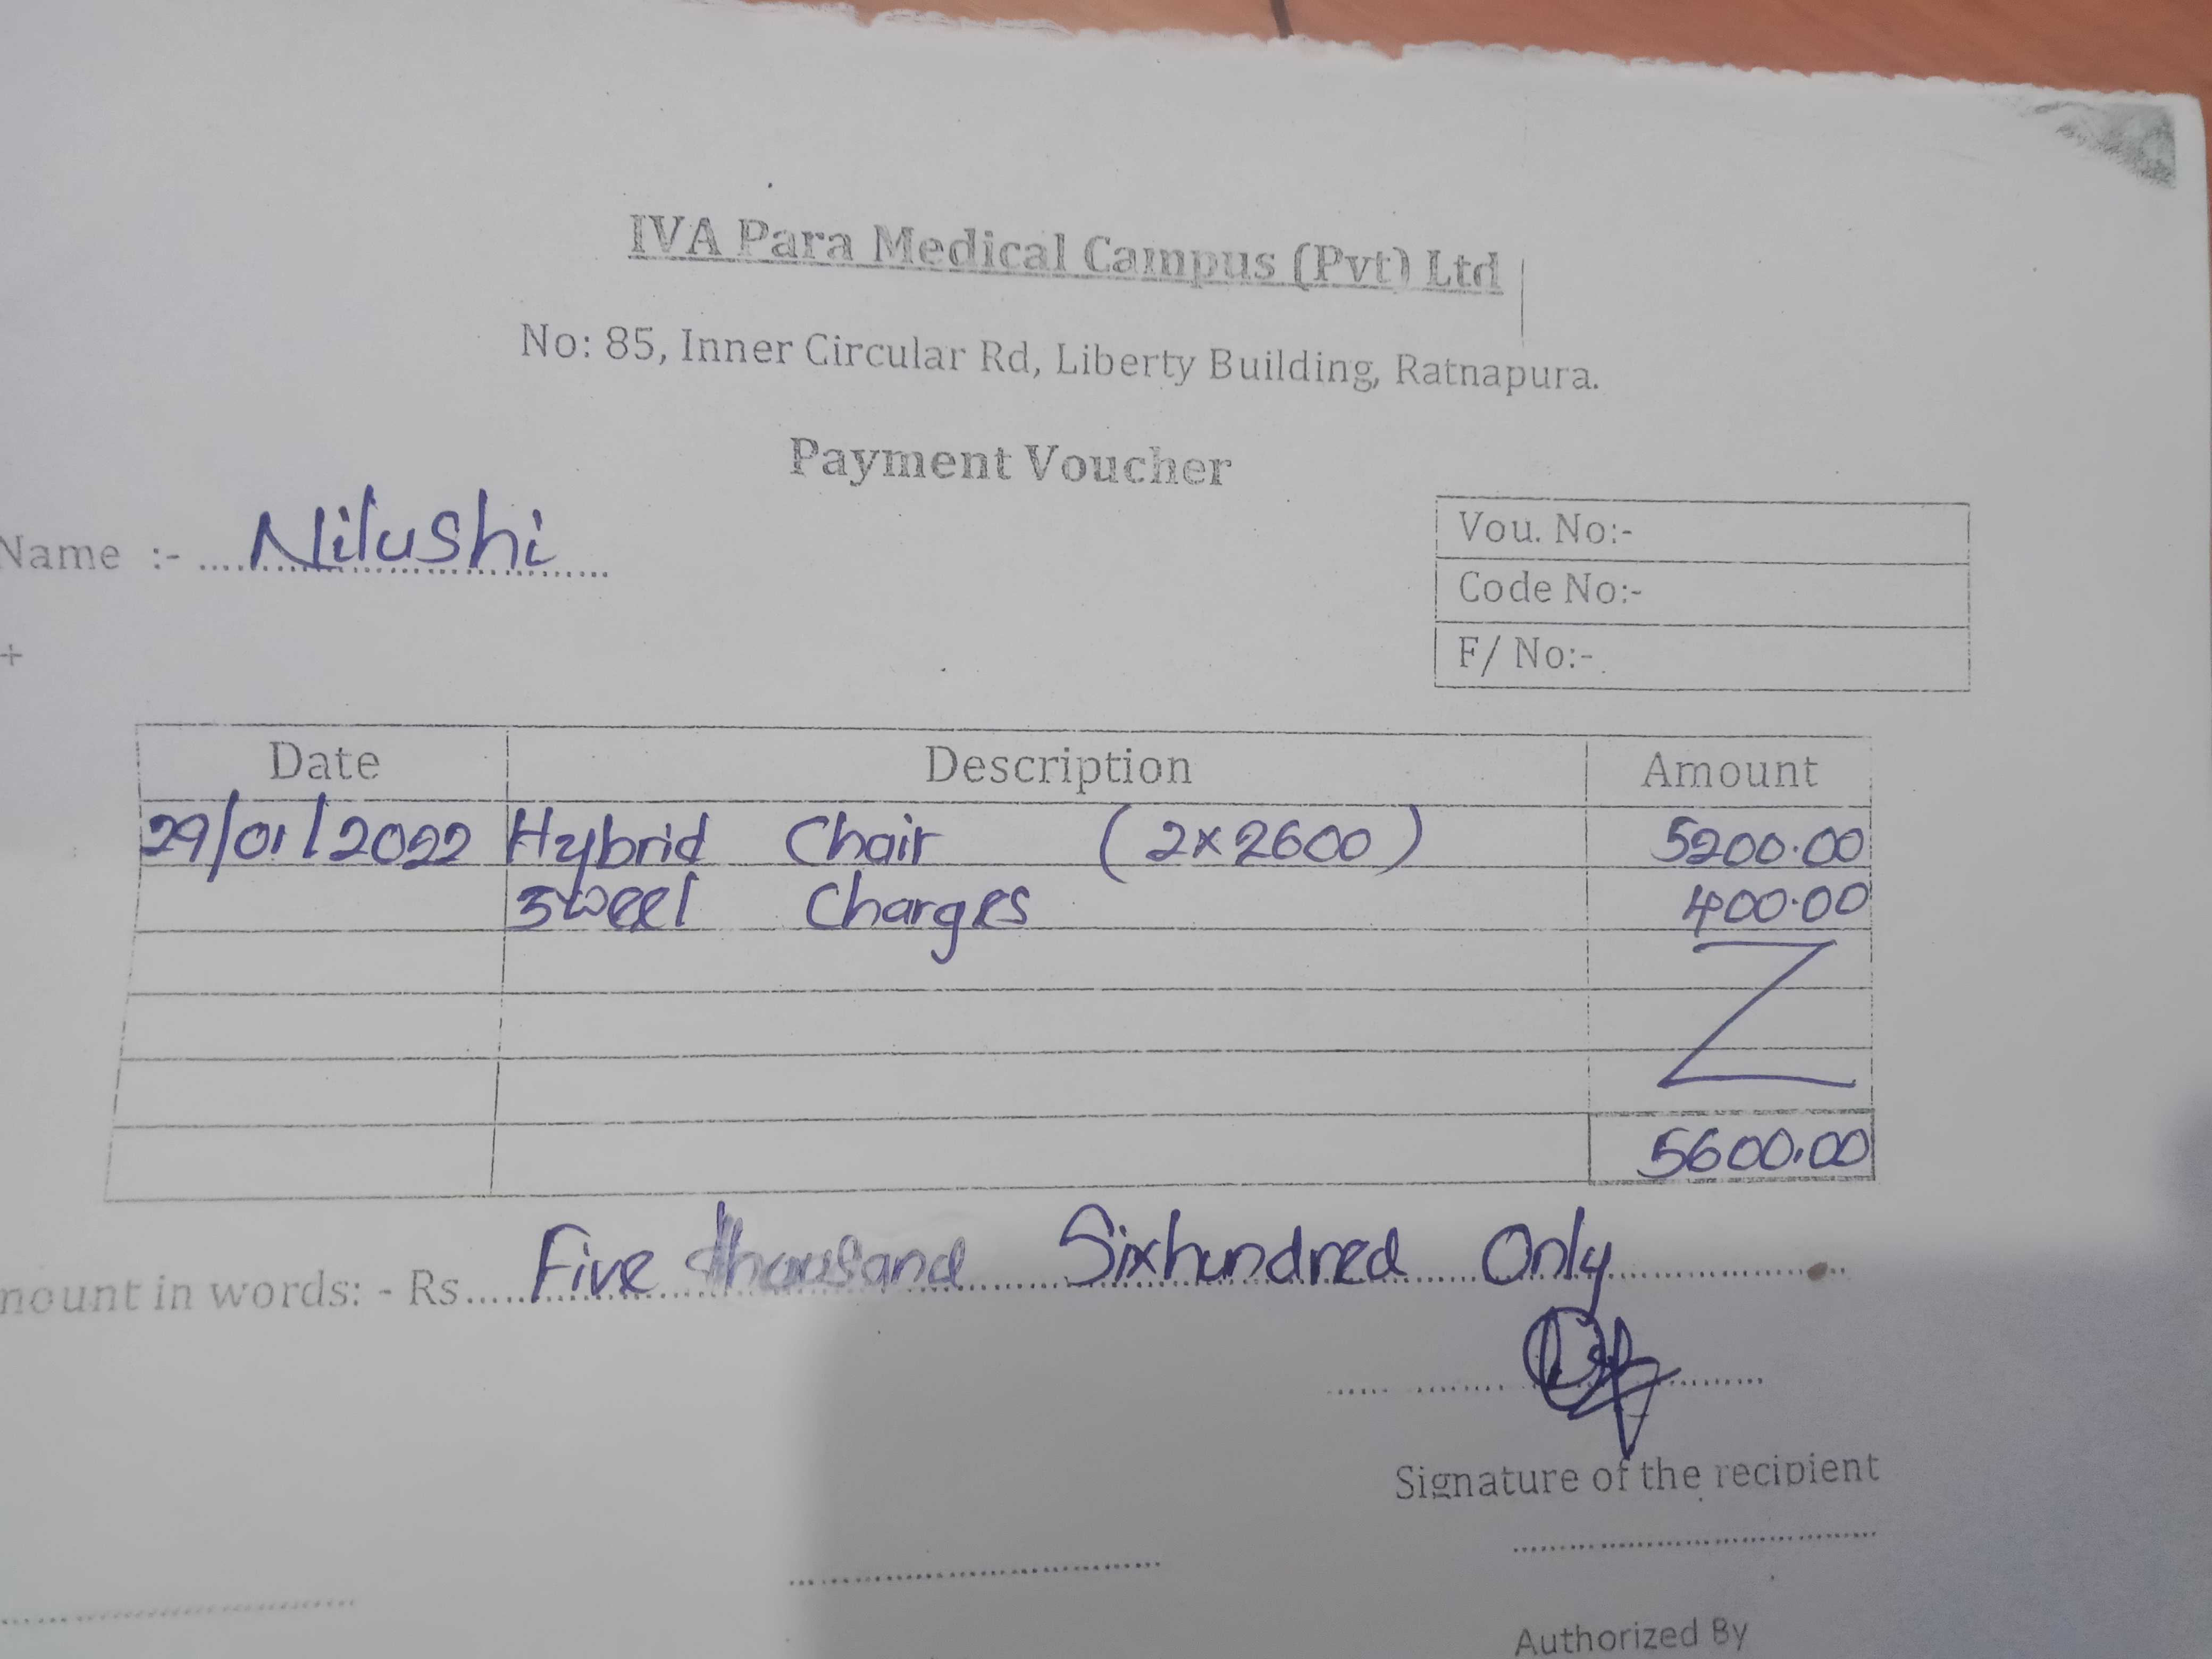 IVA Para Medical Campus (Pvt) Ltd
No: 85, Inner Circular Rd, Liberty Building, Ratnapura.
Payment Voucher
Name :- Nilushi
Vou. No:-
Code No:-
F/ No:-
+
Date Description Amount
29/01/2022 Hybrid Chair (2×2600) 5200.00
3weel Charges 400.00
5600.00
mount in words: - Rs Five thousand Sixhundred Only
Signature of the recipient
Authorized By